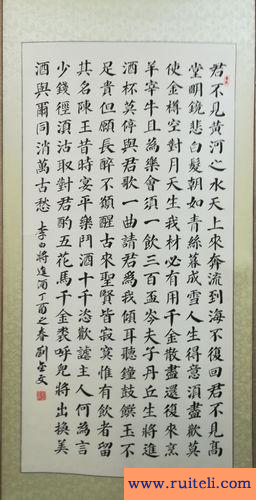 君不見黃河之水天上來奔流到海不復回君不見高
堂明鏡悲白髮朝如青絲暮成雪人生得意須盡歡莫
使金樽空對月天生我材必有用千金散盡還復來烹
羊宰牛且為樂會須一飲三百盃岑夫子丹丘生將進
酒杯莫停與君歌一曲請君為我傾耳聽鐘鼓饌玉不
足貴但願長醉不願醒古來聖賢皆寂寞惟有飲者留
其名陳王昔時宴平樂鬥酒十千恣歡謔主人何為言
少錢徑須沽取對君酌五花馬千金裘呼兒將出換美
酒與爾同消萬古愁
李白將進酒丁酉之春劉文
www.ruiteli.com